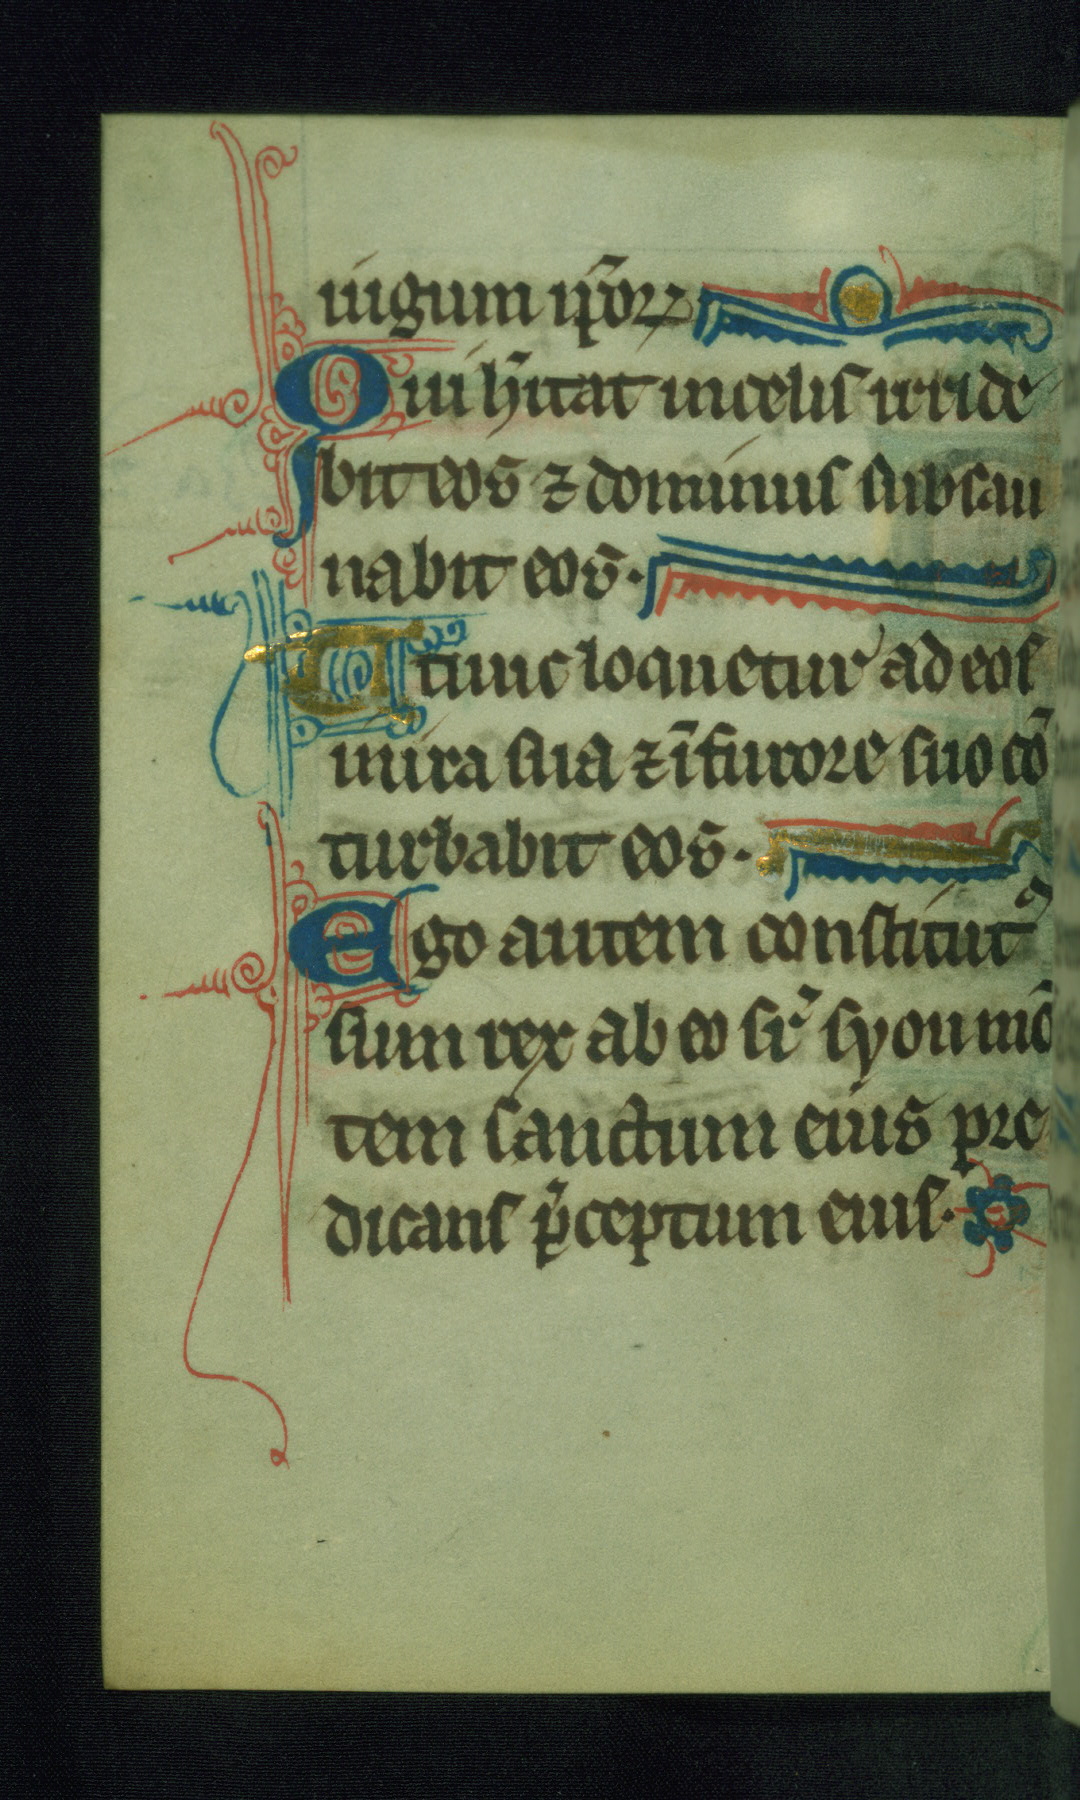 iugum ip̄oꝝ
Qui h̄itat in celis irride
bit eos ⁊ dominus subsan
nabit eos.
Tunc loquetur ad eos
in ira sua ⁊ ī furore suo cō
turbabit eos.
Ego autem constitutꝰ
sum rex ab eo sr̄ syon mō
tem sanctum eius pre
dicans p̄ceptum eius.